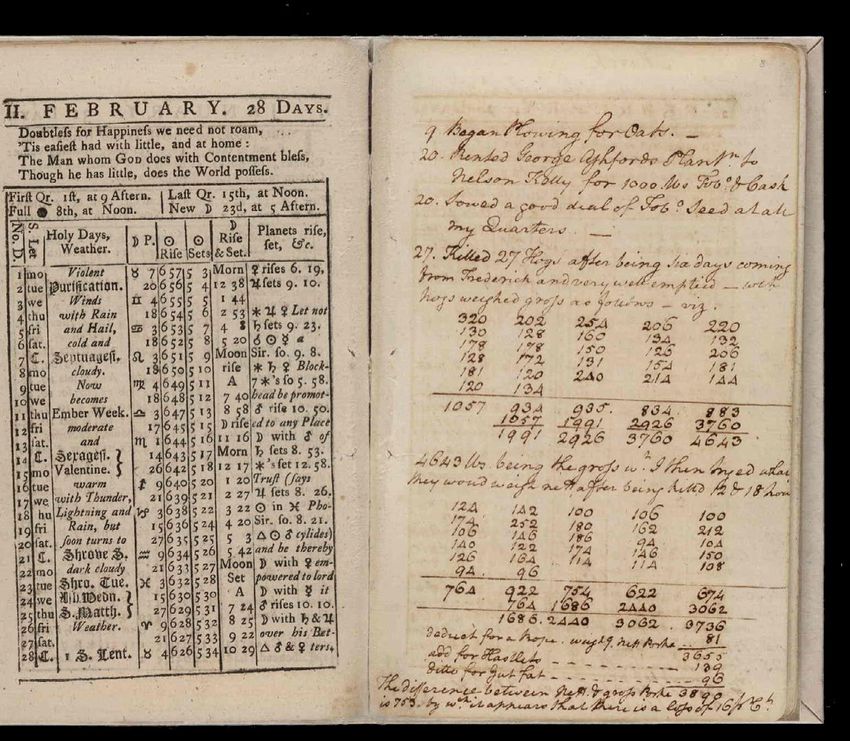 II. FEBRUARY. 28 DAYS.
Doubtleſs for Happineſs we need not roam,
'Tis eaſieſt had with little, and at home:
The Man whom GOD does with Contentment bleſs,
Though he has little, does the World poſſeſs.
Firſt Qr. 1ſt, at 9 Aftern. Laſt Qr. 15th, at Noon.
Full ● 8th, at Noon. New ☽ 23d, at 5 Aftern.
No. D. S. Let Holy Days, Weather. ☽ P. ☉ Riſe ☉ Sets ☽ Riſe & Set. Planets riſe, ſet, &c.
1 mo Violent ♉ 7 6 57 5 3 Morn ♀ riſes 6. 19.
2 tue Purification. 20 6 56 5 4 12 38 ♃ ſets 9. 10.
3 we Winds ♊ 4 6 55 5 5 1 44
4 thu with Rain 18 6 54 5 6 2 53 * ♃ ♀ Let not
5 fri and Hail, ♋ 3 6 53 5 7 4 8 ♄ ſets 9. 23.
6 ſat. cold and 18 6 52 5 8 5 20 ♂ ☉ ☿ a
7 C. Septuageſ. ♌ 3 6 51 5 9 Moon Sir. ſo. 9. 8.
8 mo cloudy. 18 6 50 5 10 riſe * ♄ ♀ Block-
9 tue Now ♍ 4 6 49 5 11 A 7 *'s ſo 5. 58.
10 we becomes 18 6 48 5 12 7 40 head be promot-
11 thu Ember Week. ♎ 3 6 47 5 13 8 58 ♂ riſe 10. 50.
12 fri moderate 17 6 45 5 15 ☽ riſe ed to any Place
13 ſat. and ♏ 1 6 44 5 16 11 16 ☽ with ♂ of
14 C. Sexageſ. 14 6 43 5 17 Morn ♄ ſets 8. 53.
15 mo Valentine. 26 6 42 5 18 12 17 *'s ſet 12. 58.
16 tue warm ♐ 9 6 40 5 20 1 20 Truſt (ſays
17 we with Thunder, 21 6 39 5 21 2 27 ♃ ſets 8. 26.
18 hu Lightning and ♑ 3 6 38 5 22 3 22 ☉ in ♓ Pho-
19 fri Rain, but 15 6 36 5 24 4 20 Sir. ſo. 8. 21.
20 ſat. ſoon turns to 27 6 35 5 25 5 3 △ ☉ ♂ cylides)
21 C. Shrove S. ♒ 9 6 34 5 26 5 42 and be thereby
22 mo dark cloudy 21 6 33 5 27 Moon ☽ with ♀ em-
23 tue Shro. Tue. ♓ 3 6 32 5 28 Set powered to lord
24 we Aſh Wedn. 15 6 30 5 30 A ☽ with ☿ it
25 thu S. Matth. 27 6 29 5 31 7 24 ♂ riſes 10. 10.
26 fri Weather. ♈ 9 6 28 5 32 8 25 ☽ with ♄ & ♃
27 ſat. 21 6 27 5 33 9 22 over his Bet-
28 C. 1 S. Lent. ♉ 4 6 26 5 34 10 29 △ ♂ & ♀ ters.
8
9 Began Plowing for Oats. —
20. Rented George Ashfords Plantn. to
Nelson Kelly for 1000 lbs Tobo. & Cask
20. Sowed a good deal of Tobo. Seed at all
my Quarters —
27. Killed 27 Hogs after being six days coming
from Frederick and very well emptied — wch
hogs weighed gross as follows — viz.
320 202 254 206 220
130 128 160 134 132
178 178 150 126 206
128 172 131 154 181
181 120 240 214 144
120 134
1057 934 935. 834. 883
1057 1991 2926 3760
1991 2926 3760 4643
4643 lbs. being the gross wt. I then tryed what
they woud weigh nett after being killd 12 & 18 hou
124 142 100 106 100
174 252 180 162 212
106 146 186 94 104
140 122 174 146 150
126 164 114 114 108
94 96
764 922 754 622 674
764 1686 2440 3062
1686. 2440 3062. 3736
deduct for a Rope. weighg. nett Porke 81
3655
add for Haslets 139
ditto for Gut Fat 96
The difference between Nett & gross Porke 3890
is 753. by wch. it appears that there is a loss of 16 pr. Ct.